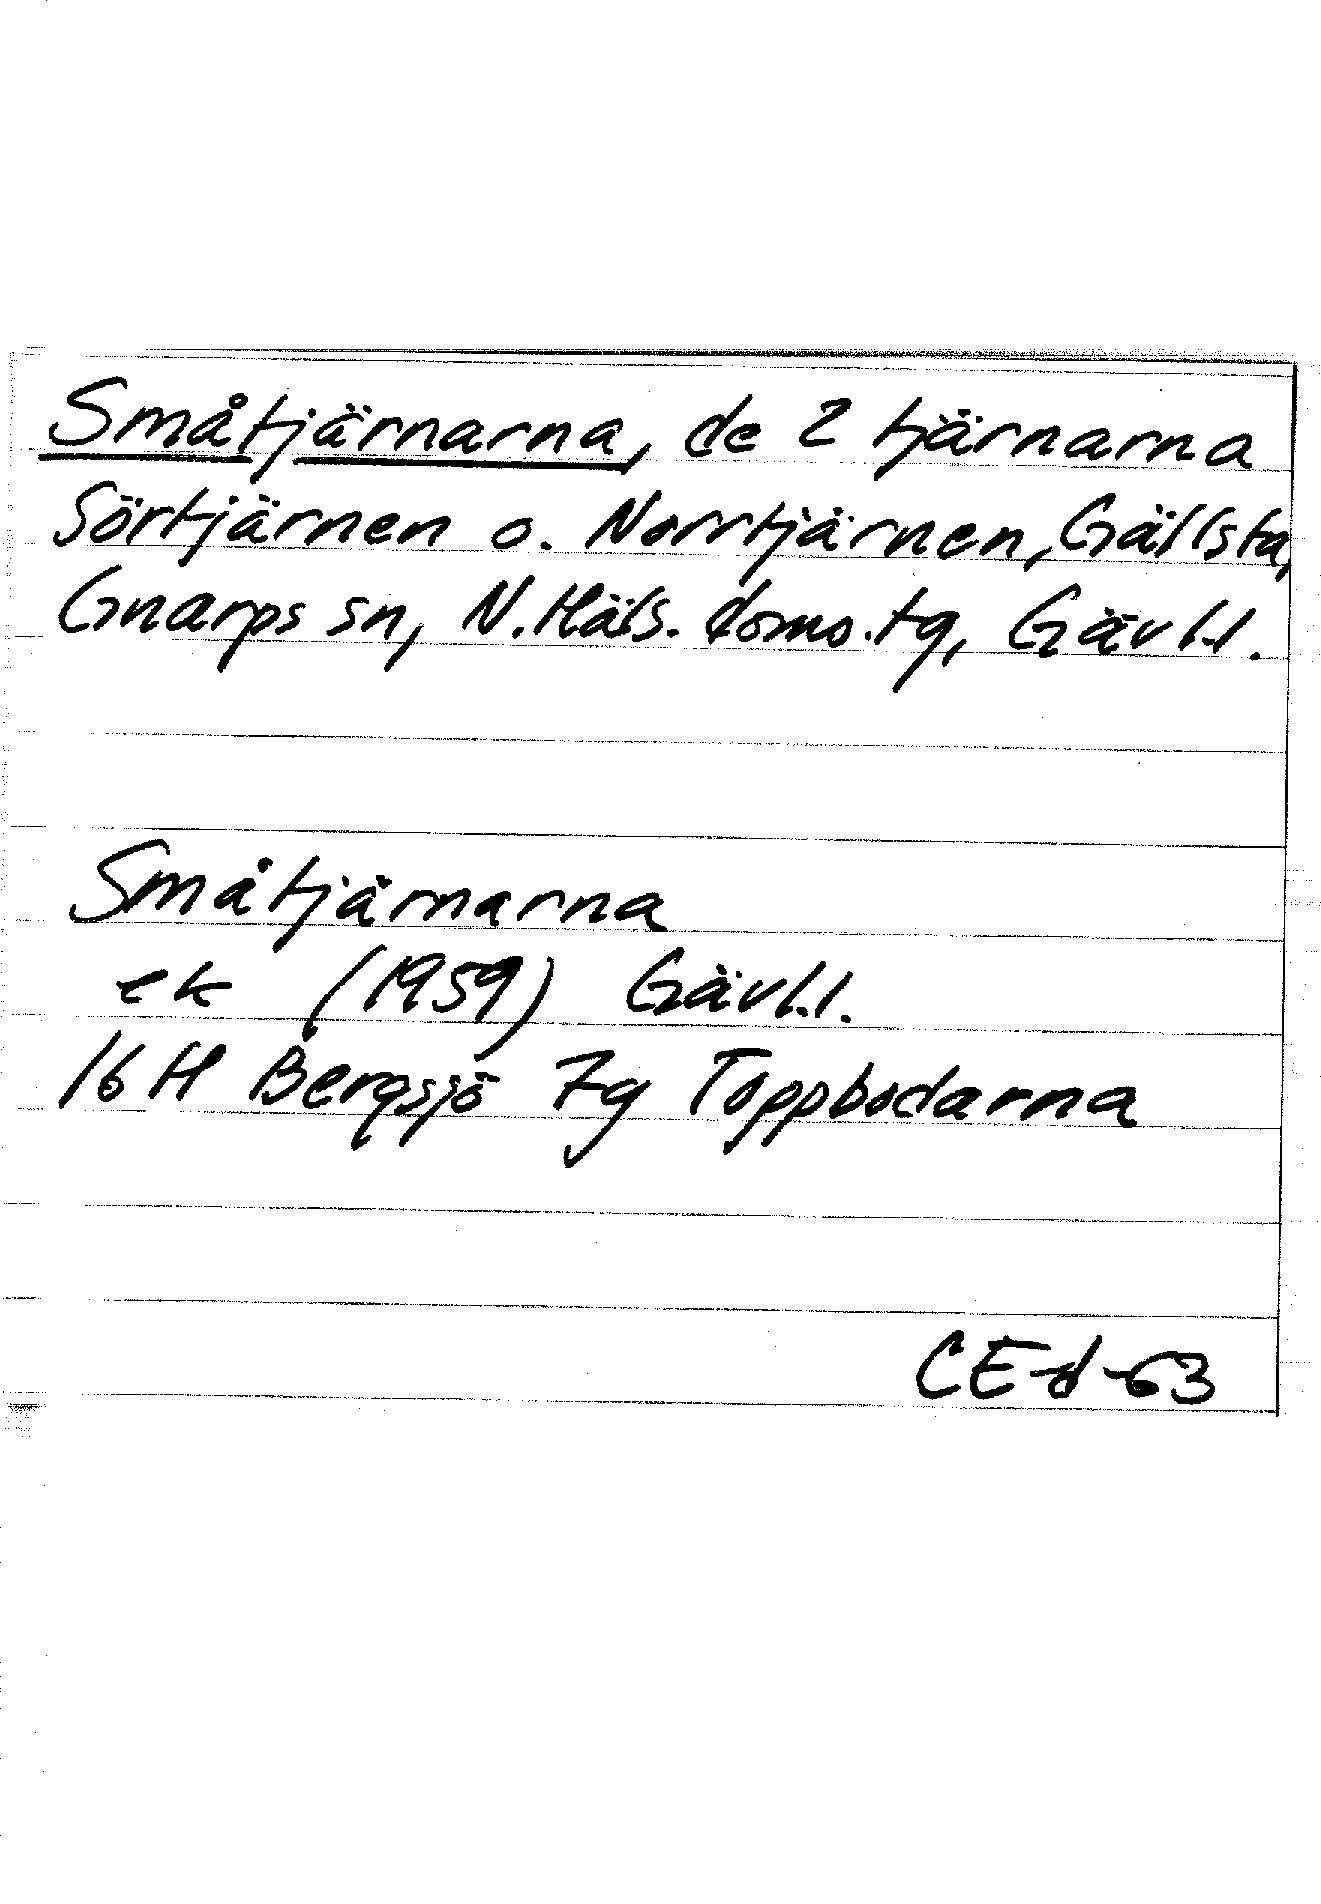 Småtjärnarna, de 2 tjärnarna
Sörtjärnen o. Norrtjärnen, Gällsta,
Gnarps sn, N. Häls. doms.tg, Gävl.l.
Småtjärnarna
ek (1959) Gävl.l.
16 H Bergsjö 7g Toppbodarna
CEd-63